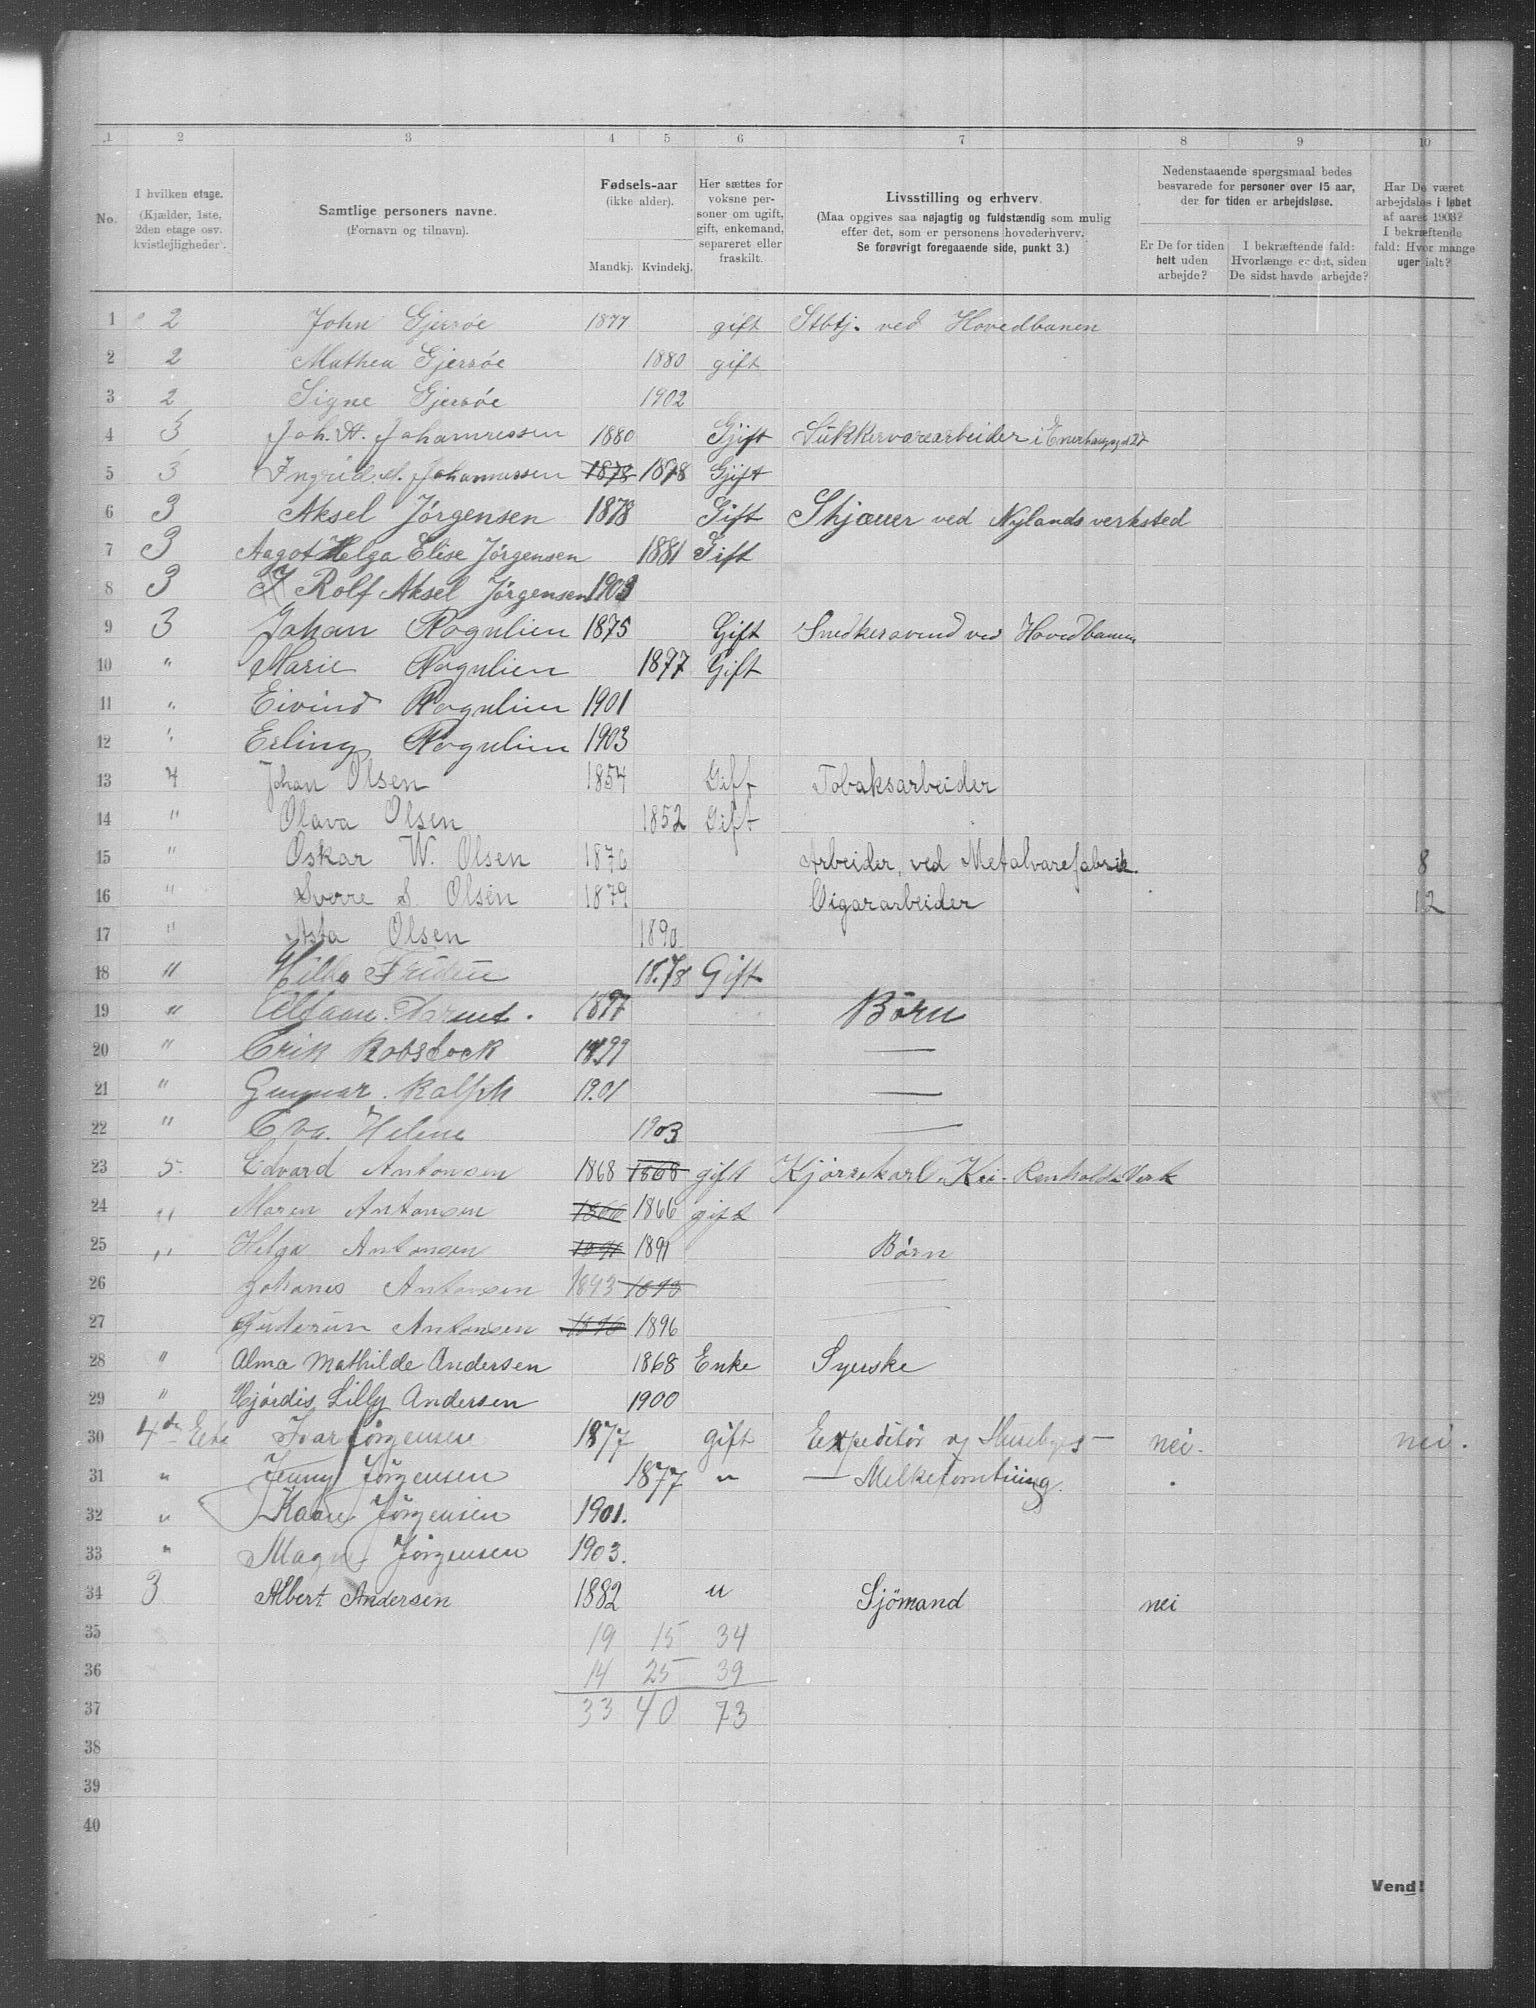 1 2 3 4 5 6 7 8 9 10
No. I hvilken etage. (Kjælder, 1ste, 2den etage osv. kvistleiligheder). Samtlige personers navne. (Fornavn og tilnavn). Fødsels-aar (ikke alder). Mandkj. Kvindekj. Her sættes for voksne personer om ugift, gift, enkemand, separeret eller fraskilt. Livsstilling og erhverv. (Maa opgives saa nøjagtig og fuldstændig som mulig efter det, som er personens hovederhverv. Se forøvrigt foregaaende side, punkt 3.) Nedenstaaende spørgsmaal bedes besvarede for personer over 15 aar, der for tiden er arbejdsløse. Er De for tiden helt uden arbejde? I bekræftende fald: Hvorlænge er det, siden De sidst havde arbejde? Har De været arbejdsløs i løbet af aaret 1903? I bekræftende fald: Hvor mange uger ialt?
1 2 John Gjersøe 1877 gift Stbtj. ved Hovedbanen
2 2 Mathea Gjersøe 1880 gift
3 2 Signe Gjersøe 1902
4 3 Joh. A. Johannessen 1880 Gjift Sukkervarearbeider i
5 3 Ingrid Johannessen 1878 1878 Gjift
6 3 Aksel Jørgensen 1878 Gift Skjæuer ved Nylands verksted
7 3 Aagot Helga Elise Jørgensen 1881 Gift
8 3 Rolf Aksel Jørgensen 1903
9 3 Johan Rognlien 1875 Gift Snedkersvend ved Hovedbanen
10 " Marie Rognlien 1877 Gift
11 " Eivind Rognlien 1901
12 " Erling Rognlien 1903
13 4 Johan Olsen 1854 Gift Tobaksarbeider
14 " Olava Olsen 1852 Gift
15 " Oskar W. Olsen 1876 Arbeider, ved Metalvarefabrik. 8
16 " Sverre S. Olsen 1879 Cigararbeider 12
17 " Asta Olsen 1890
18 " Hilda 1878 Gift
19 " 1897 Børn
20 " Erik Robstock 1899 —
21 " Gunnar. Ralph 1901 —
22 " Eva. Helene 1903 —
23 5 Edvard Antonsen 1868 1868 gift Kjørrekarl. Kri. Renholds Verk
24 " Maren Antonsen 1866 1866 gift
25 " Helga Antonsen 1891 1891 Børn
26 Johanes Antonsen 1893 1893 —
27 Guderun Antonsen 1896 1896 —
28 " Alma Mathilde Andersen 1868 Enke Syerske
29 " Hjørdis Lilly Andersen 1900
30 4de Etg Ivar Jørgensen 1877 gift Expeditør nei. nei.
31 " Jenny Jørgensen 1877 " — Melkeforretning.
32 " Kaare Jørgensen 1901.
33 " Magne Jørgensen 1903.
34 3 Albert Andersen 1882 u Sjömand nei
35 19 15 34
36 14 25 39
37 33 40 73
38
39
40
Vend!